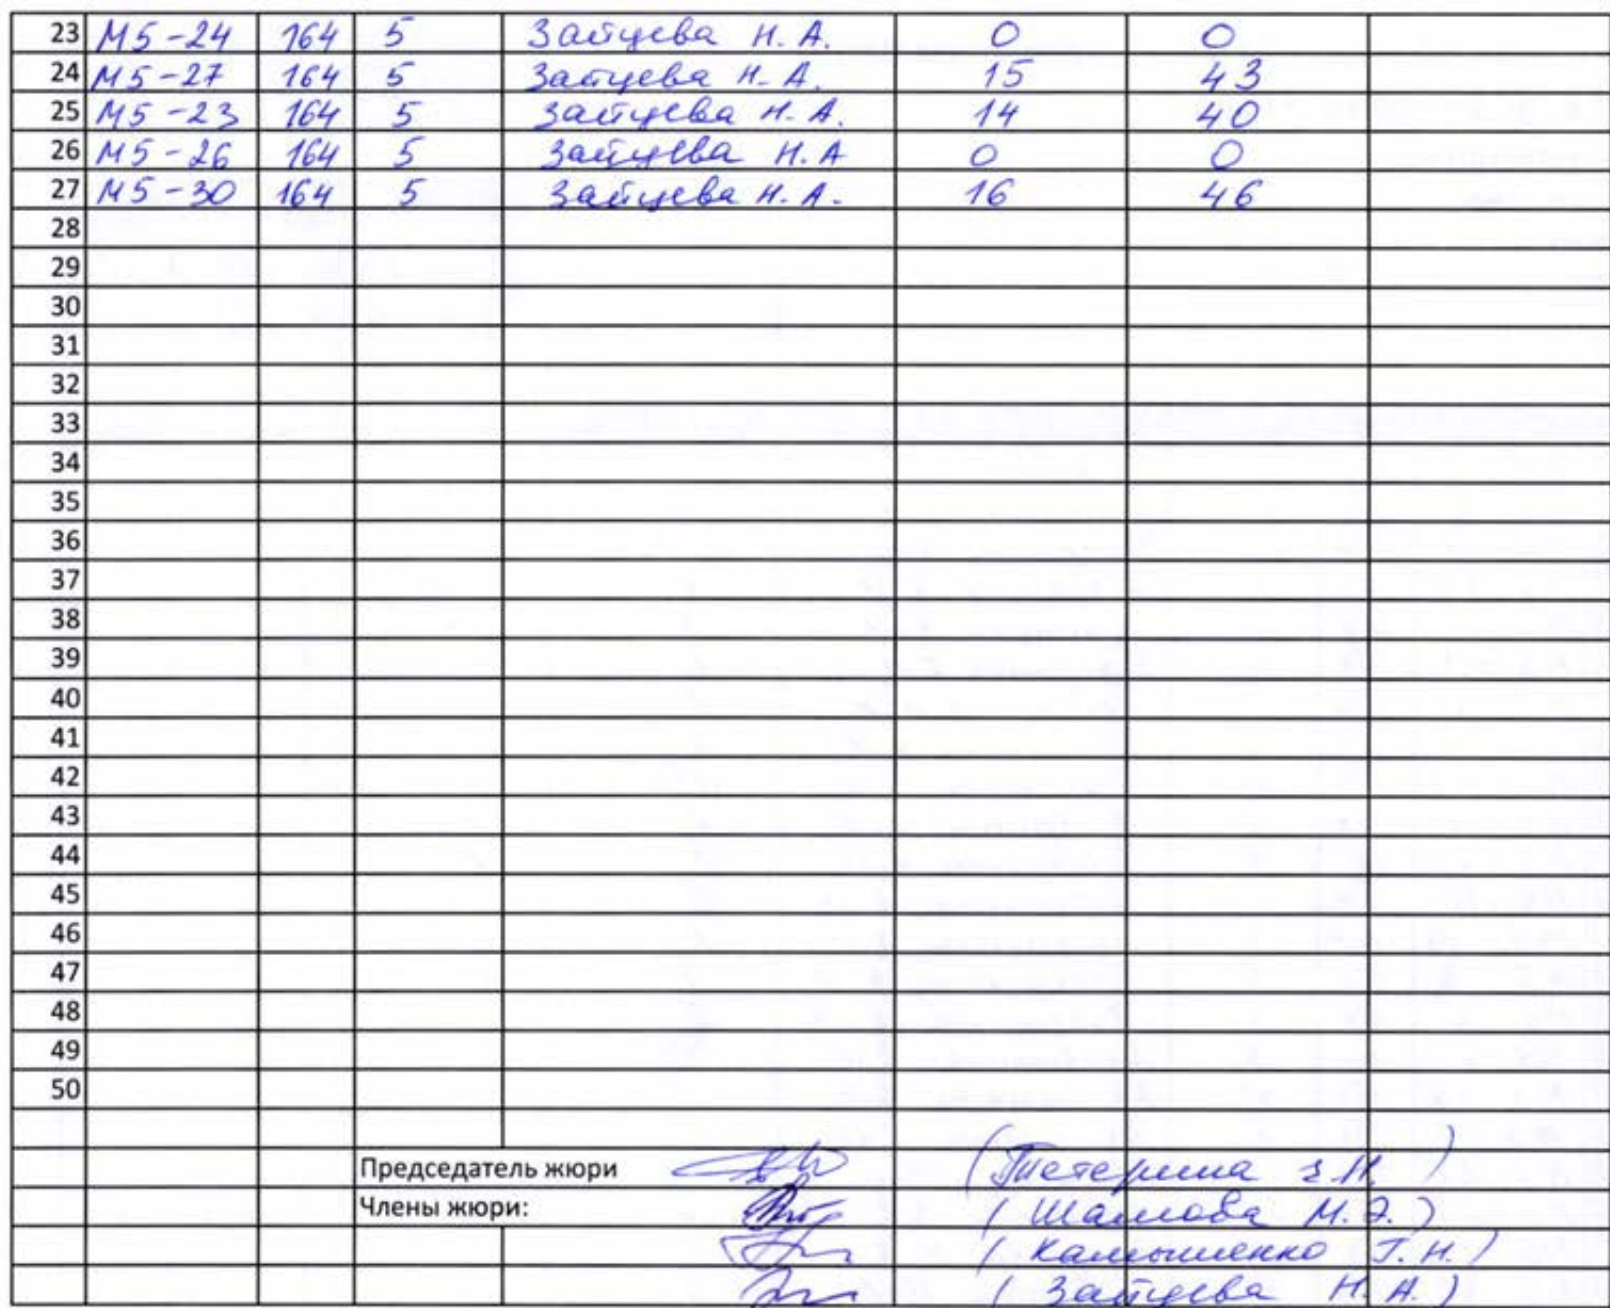 23 М5-24 164 5 Зайцева Н. А. 0 0
24 М5-27 164 5 Зайцева Н. А. 15 43
25 М5-23 164 5 Зайцева Н. А. 14 40
26 М5-26 164 5 Зайцева Н. А 0 0
27 М5-30 164 5 Зайцева Н. А. 16 46
28
29
30
31
32
33
34
35
36
37
38
39
40
41
42
43
44
45
46
47
48
49
50
Председатель жюри (Тетерина )
Члены жюри: ( М. Э.)
( Т. Н.)
( Зайцева Н. А.)